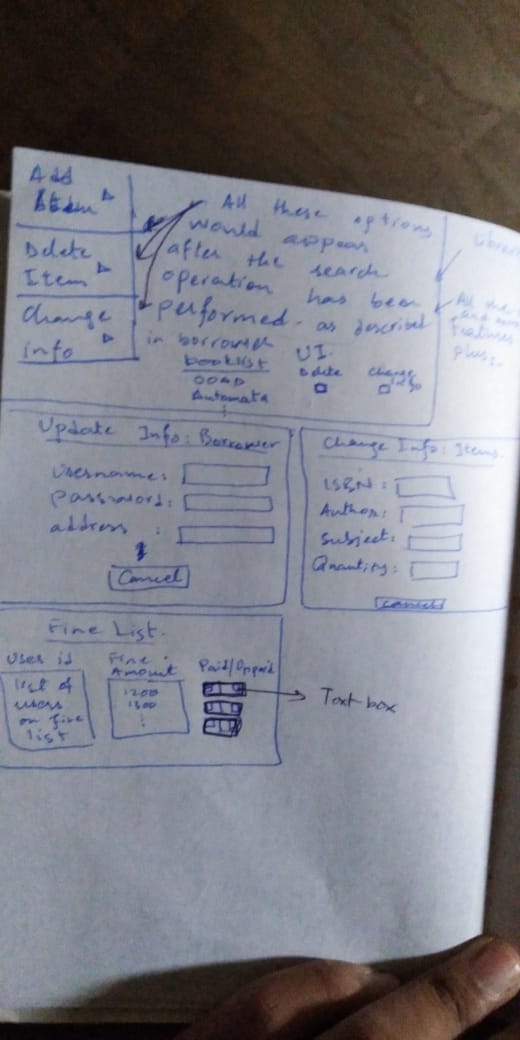 Add
Item
Delete
Item
Change
info
All these options
would appear
after the search
operation has been
performed - as described
in borrower UI.
booklist Delete Change
Info
OOAD
Automata
All the
and
features
plus:-
Update Info: Borrower
Username:
Password:
address :
Cancel
Change Info: Items
ISBN:
Author:
Subject:
Quantity:
Cancel
Fine List.
User id
Fine
Amount
Paid/Unpaid
list of
users
on fine
list
1200
1300
Text box